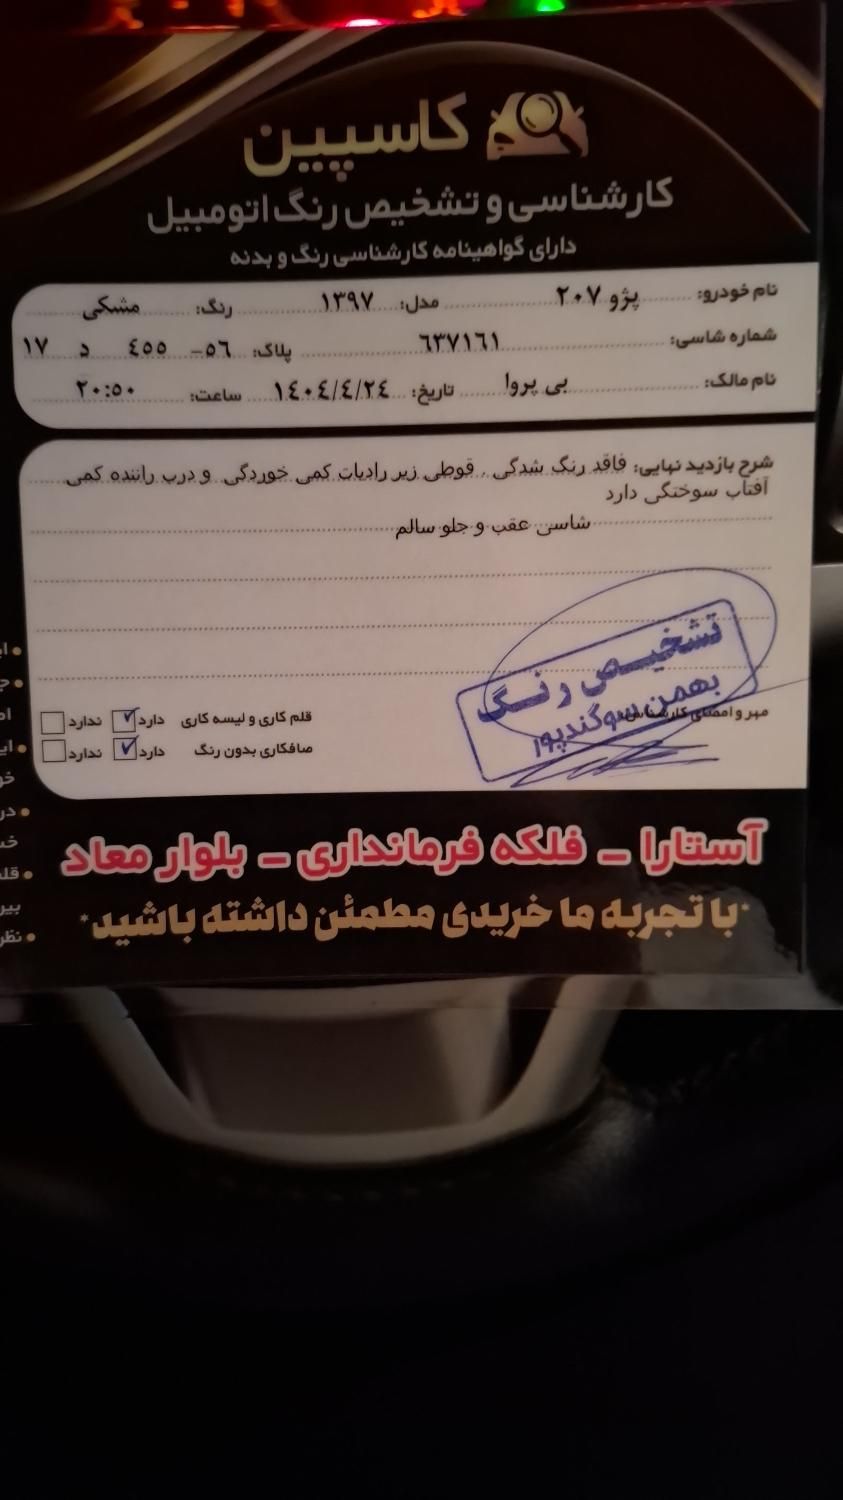 کاسپین
کارشناسی و تشخیص رنگ اتومبیل
دارای گواهینامه کارشناسی رنگ و بدنه
نام خودرو: پژو ۲۰۷ مدل: ۱۳۹۷ رنگ: مشکی
شماره شاسی: ٦٣٧١٦١ پلاک: ٥٦- ٤٥٥ د ١٧
نام مالک: بی پروا تاریخ: ١٤٠٤/٤/٢٤ ساعت: ٢٠:٥٠
شرح بازدید نهایی: فاقد رنگ شدگی . قوطی زیر رادیات کمی خوردگی و درب راننده کمی
آفتاب سوختگی دارد
شاسی عقب و جلو سالم
تشخیص رنگ
بهمن سوگندپور
مهر و امضای کارشناس:
قلم کاری و لیسه کاری دارد ✓ ندارد
صافکاری بدون رنگ دارد ✓ ندارد
آستارا – فلکه فرمانداری – بلوار معاد
*با تجربه ما خریدی مطمئن داشته باشید*